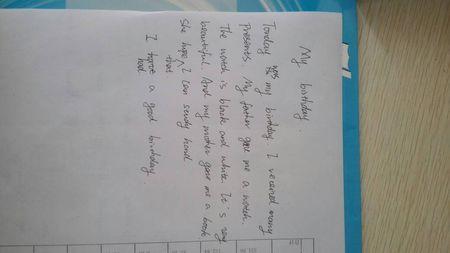 My birthday.
Today was my birthday. I received many
Presents. My father gave me a watch.
The watch is black and white. It is very
beautiful. And my mother gave me a book
She hope that I can study hard
I had a good birthday.